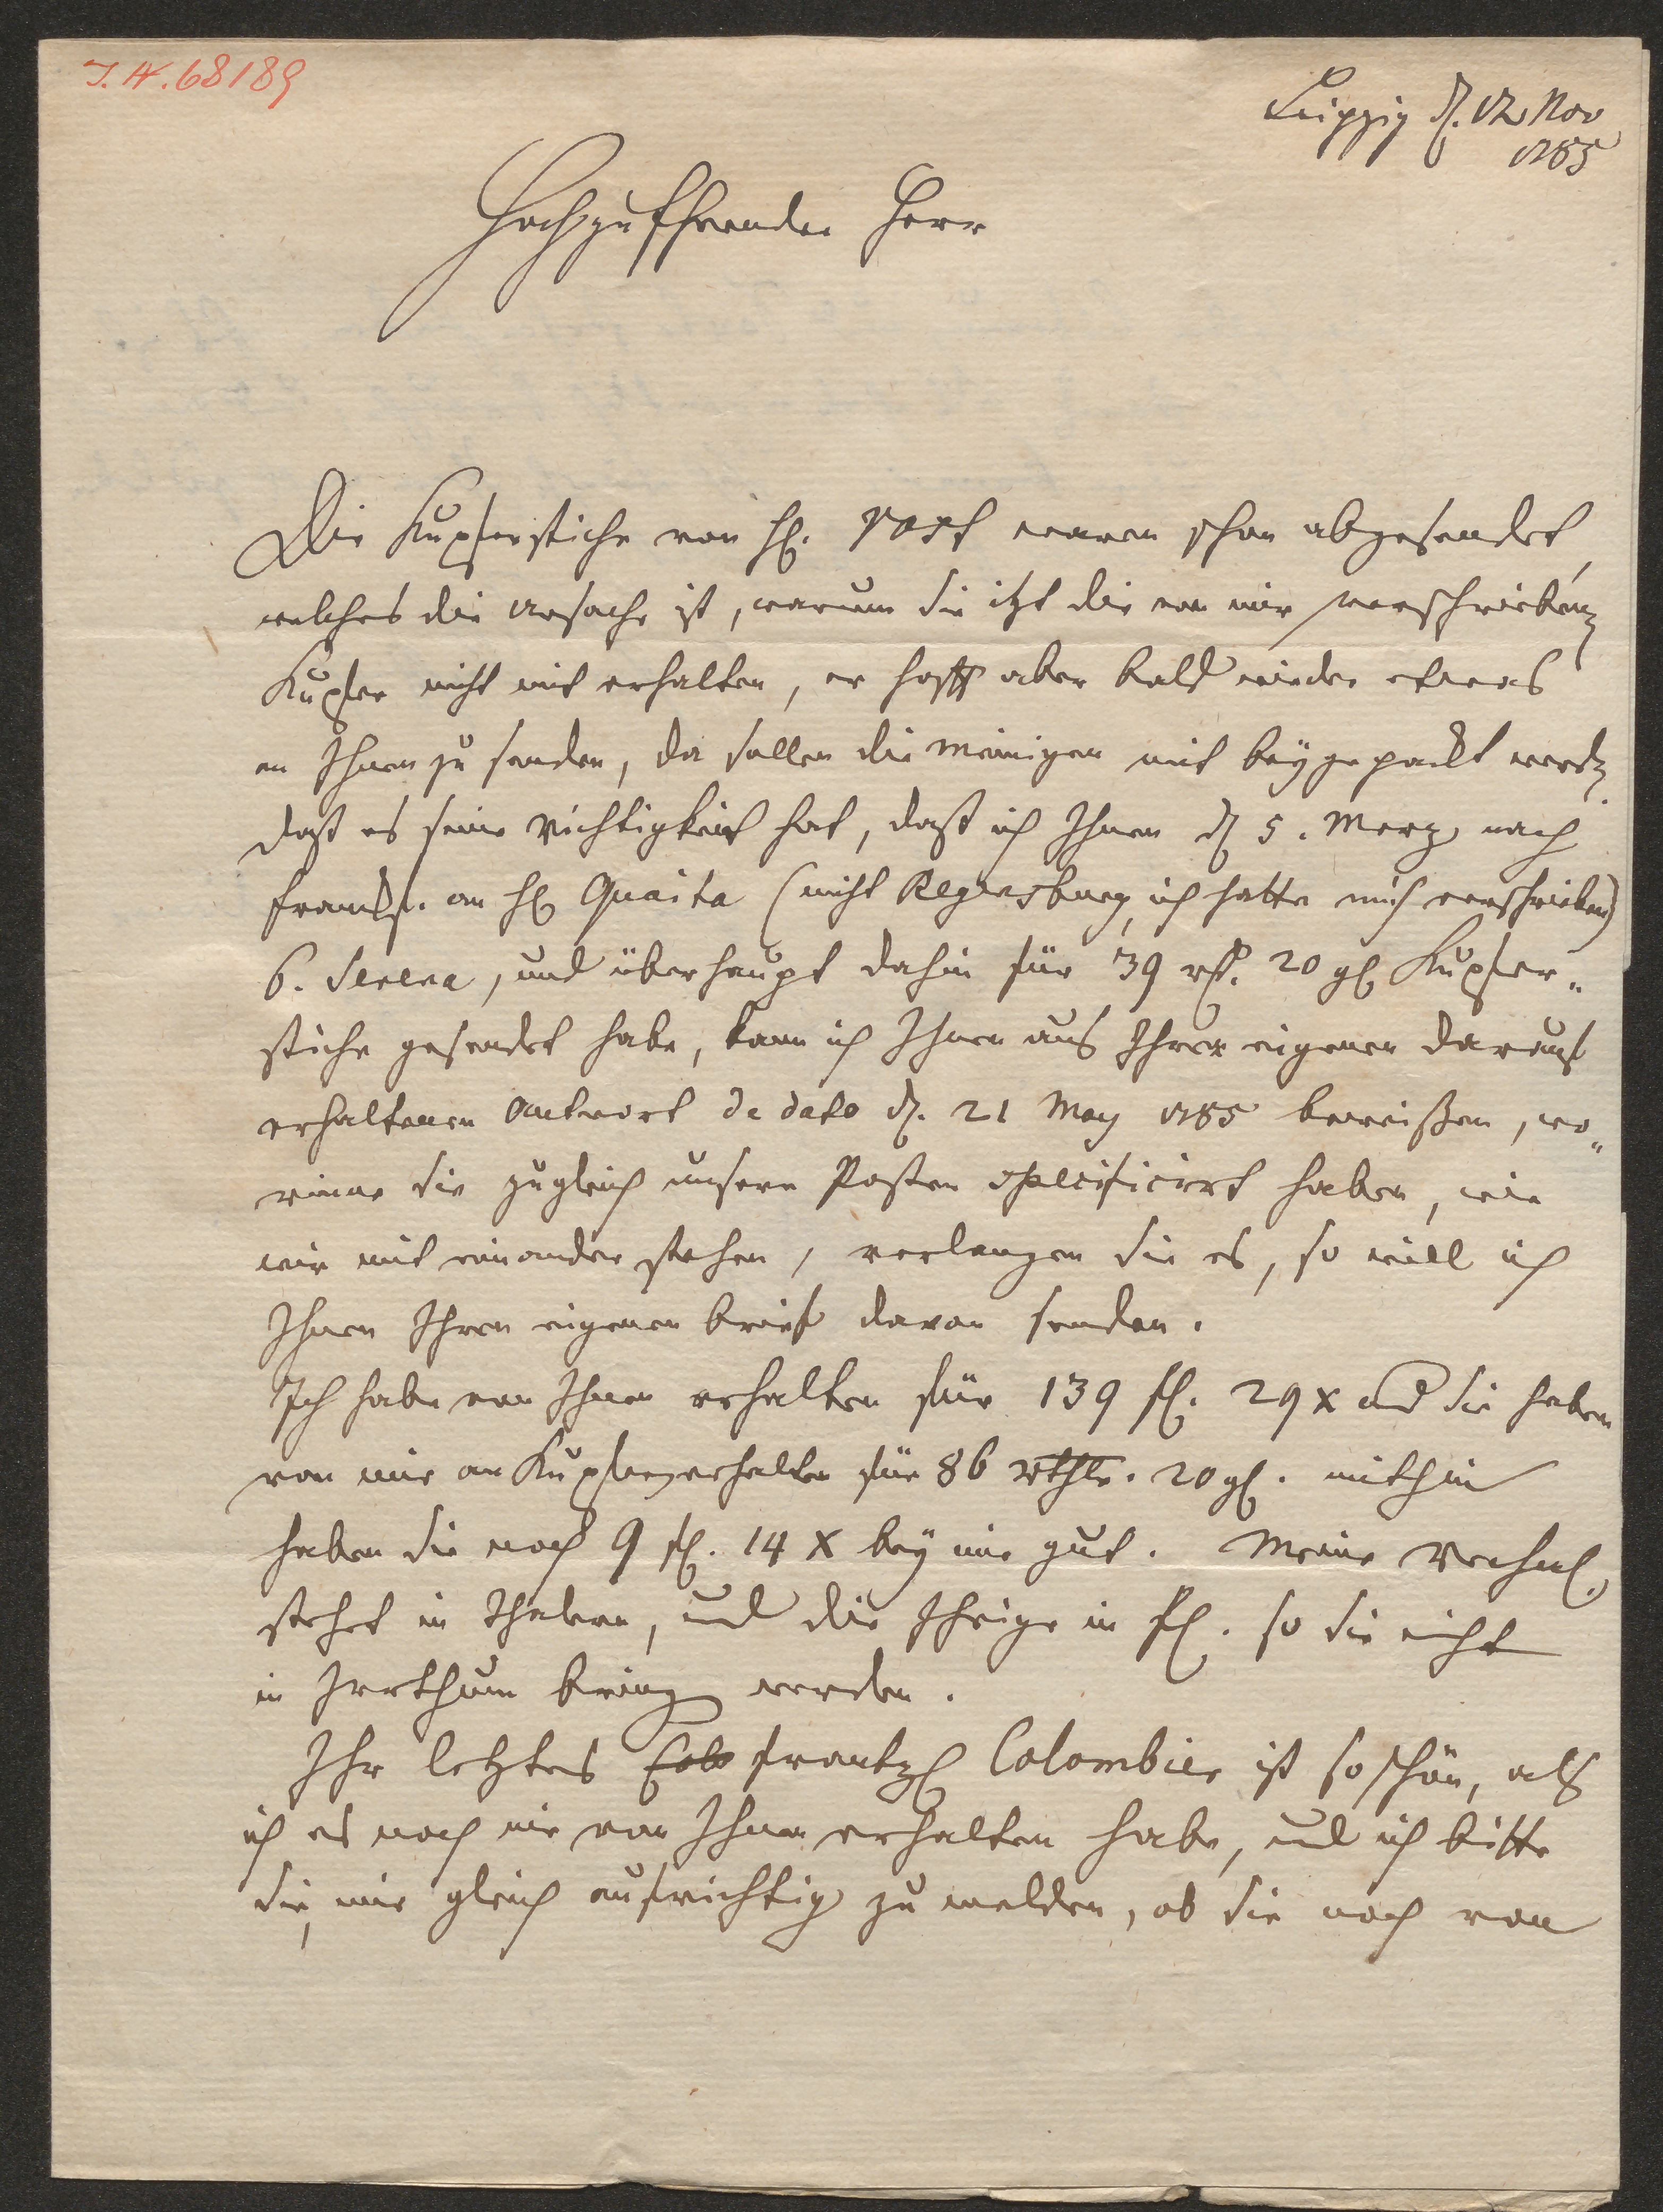 I. N. 68189
Leipzig d. 12 Nov
1785
HochzuEhrender Herr
Die Kupferstiche von H. Rost waren schon abgesendet,
welches die Ursache ist, warum Sie itzt die von mir verschrieben
Kupfer nicht mit erhalten, er hofft aber bald wieder etwas
an Ihnen zu senden, da sollen die meinigen mit beygepackt werd.
Daß es seine Richtigkeit hat, daß ich Ihnen d 5. Merz nach
Frankf. an H Quaita (nicht Regensburg, ich hatte mich verschrieben)
6. Serena, und überhaupt dahin für 39 rth. 20 gl Kupfer„
stiche gesendet habe, kann ich Ihnen aus Ihrer eigenen darauf
erhaltenen Antwort de dato d. 21 May 1785 beweißen, wo„
rinne Sie zugleich unsern Posten specificirt haben, wie
wir mit einander stehen, verlangen Sie es, so will ich
Ihnen Ihren eigenen Brief davon senden.
Ich habe von Ihnen erhalten für 139 fl. 29 x und Sie haben
von mir an Kupfern erhalten für 86 rthlr. 20 gl. mithin
haben Sie noch 9 fl. 14 x bey mir gut. Meine Rechnl.
stehet in Thalern, und die Ihrige in fl. so Sie nicht
in Irrthum bring werden.
Ihr letztes Colo frantzl Colombier ist so schön, als
ich es noch nie von Ihnen erhalten habe, und ich bitte
Sie, mir gleich aufrichtig zu melden, ob Sie noch von